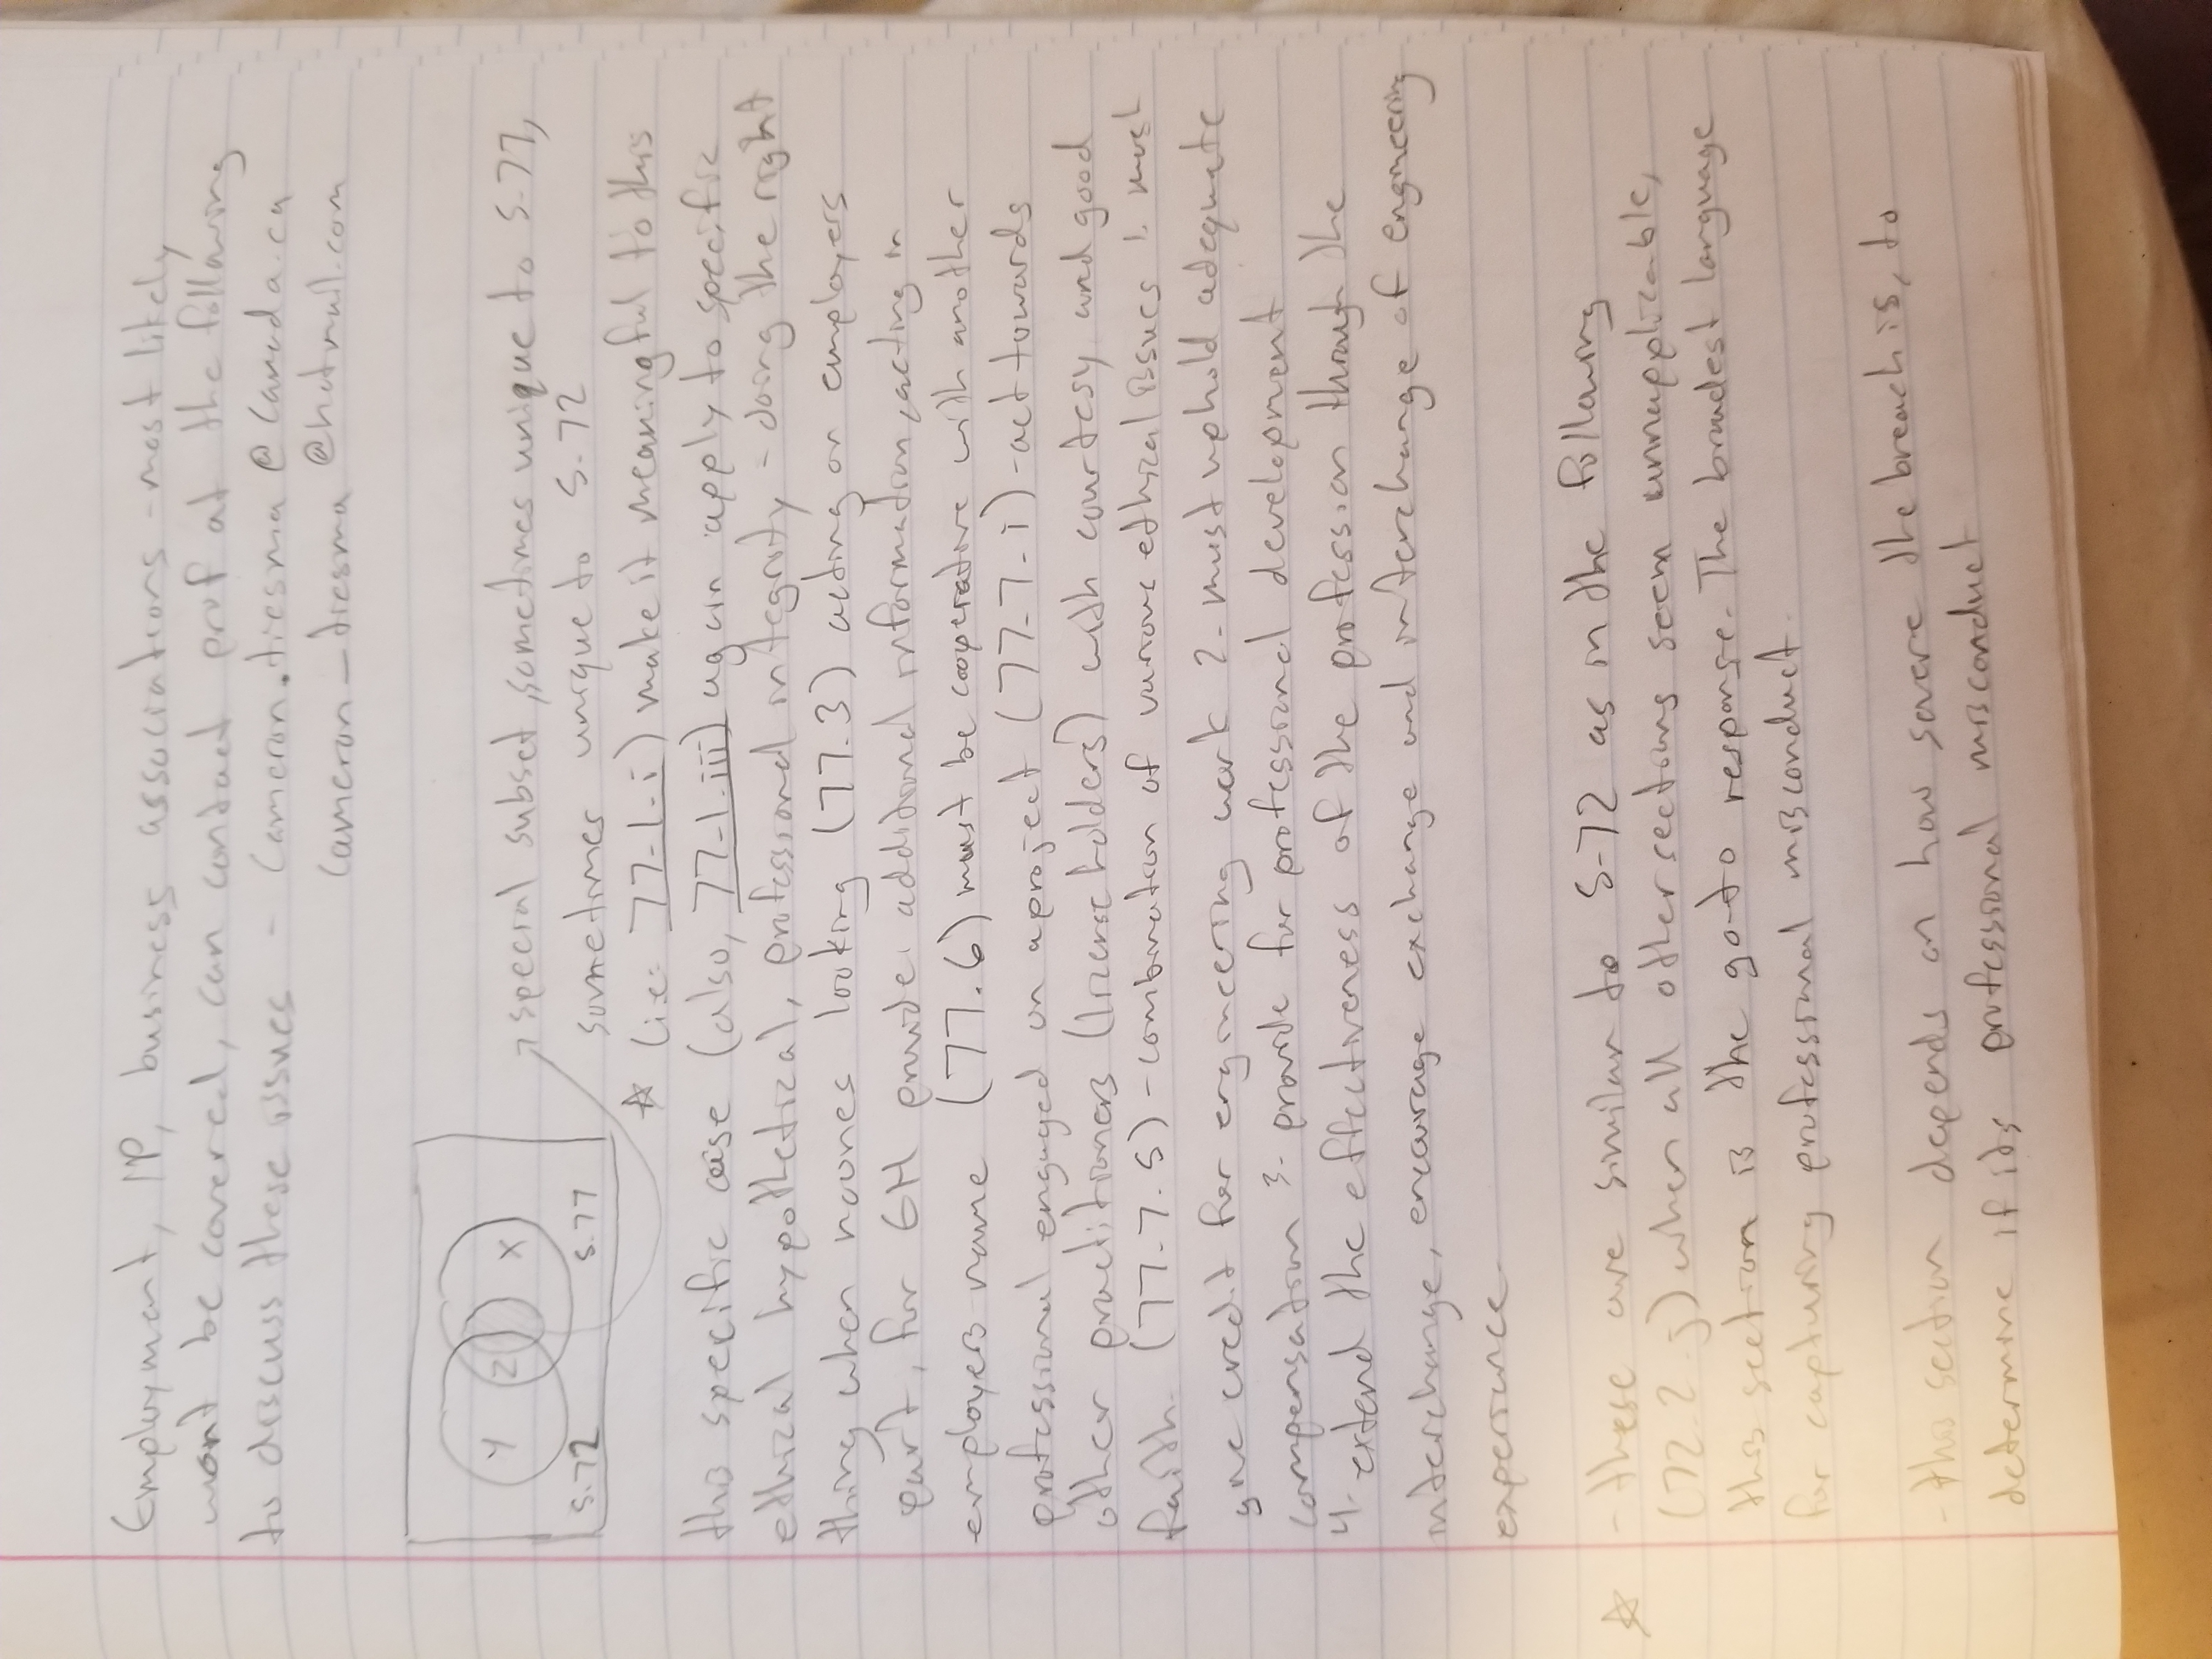 Employment, IP, business associations - most likely
wont be covered, can contact prof at the following
to discuss these issues - cameron.tiesma@canada.ca
cameron_tiesma@hotmail.com
Y Z X
S.72 S.77
→ special subset, sometimes unique to S.77,
sometimes unique to S.72
☆ (i.e. 77-1-i) make it meaningful to this
this specific case (also, 77-1-iii) again apply to specific
ethical hypothetical, professional integrity - doing the right
thing when noones looking (77.3) acting on employers
part, for GH provide additional information, acting in
employers name (77.6) must be cooperative with another
professional engaged on a project (77-7-i) - act towards
other practitioners (license holders) with courtesy and good
faith. (77-7.5) - combination of various ethical issues 1. must
give credit for engineering work 2- must uphold adequate
compensation 3. provide for professional development
4- extend the effectiveness of the profession through the
interchange, encourage exchange and interchange of engineering
experience.
☆ - these are similar to S-72 as in the following
(72.2.j) when all other sections seem unnaplicable,
this section is the go-to response. The broadest language
for capturing professional misconduct.
- this section depends on how severe the breach is, to
determine if its professional misconduct